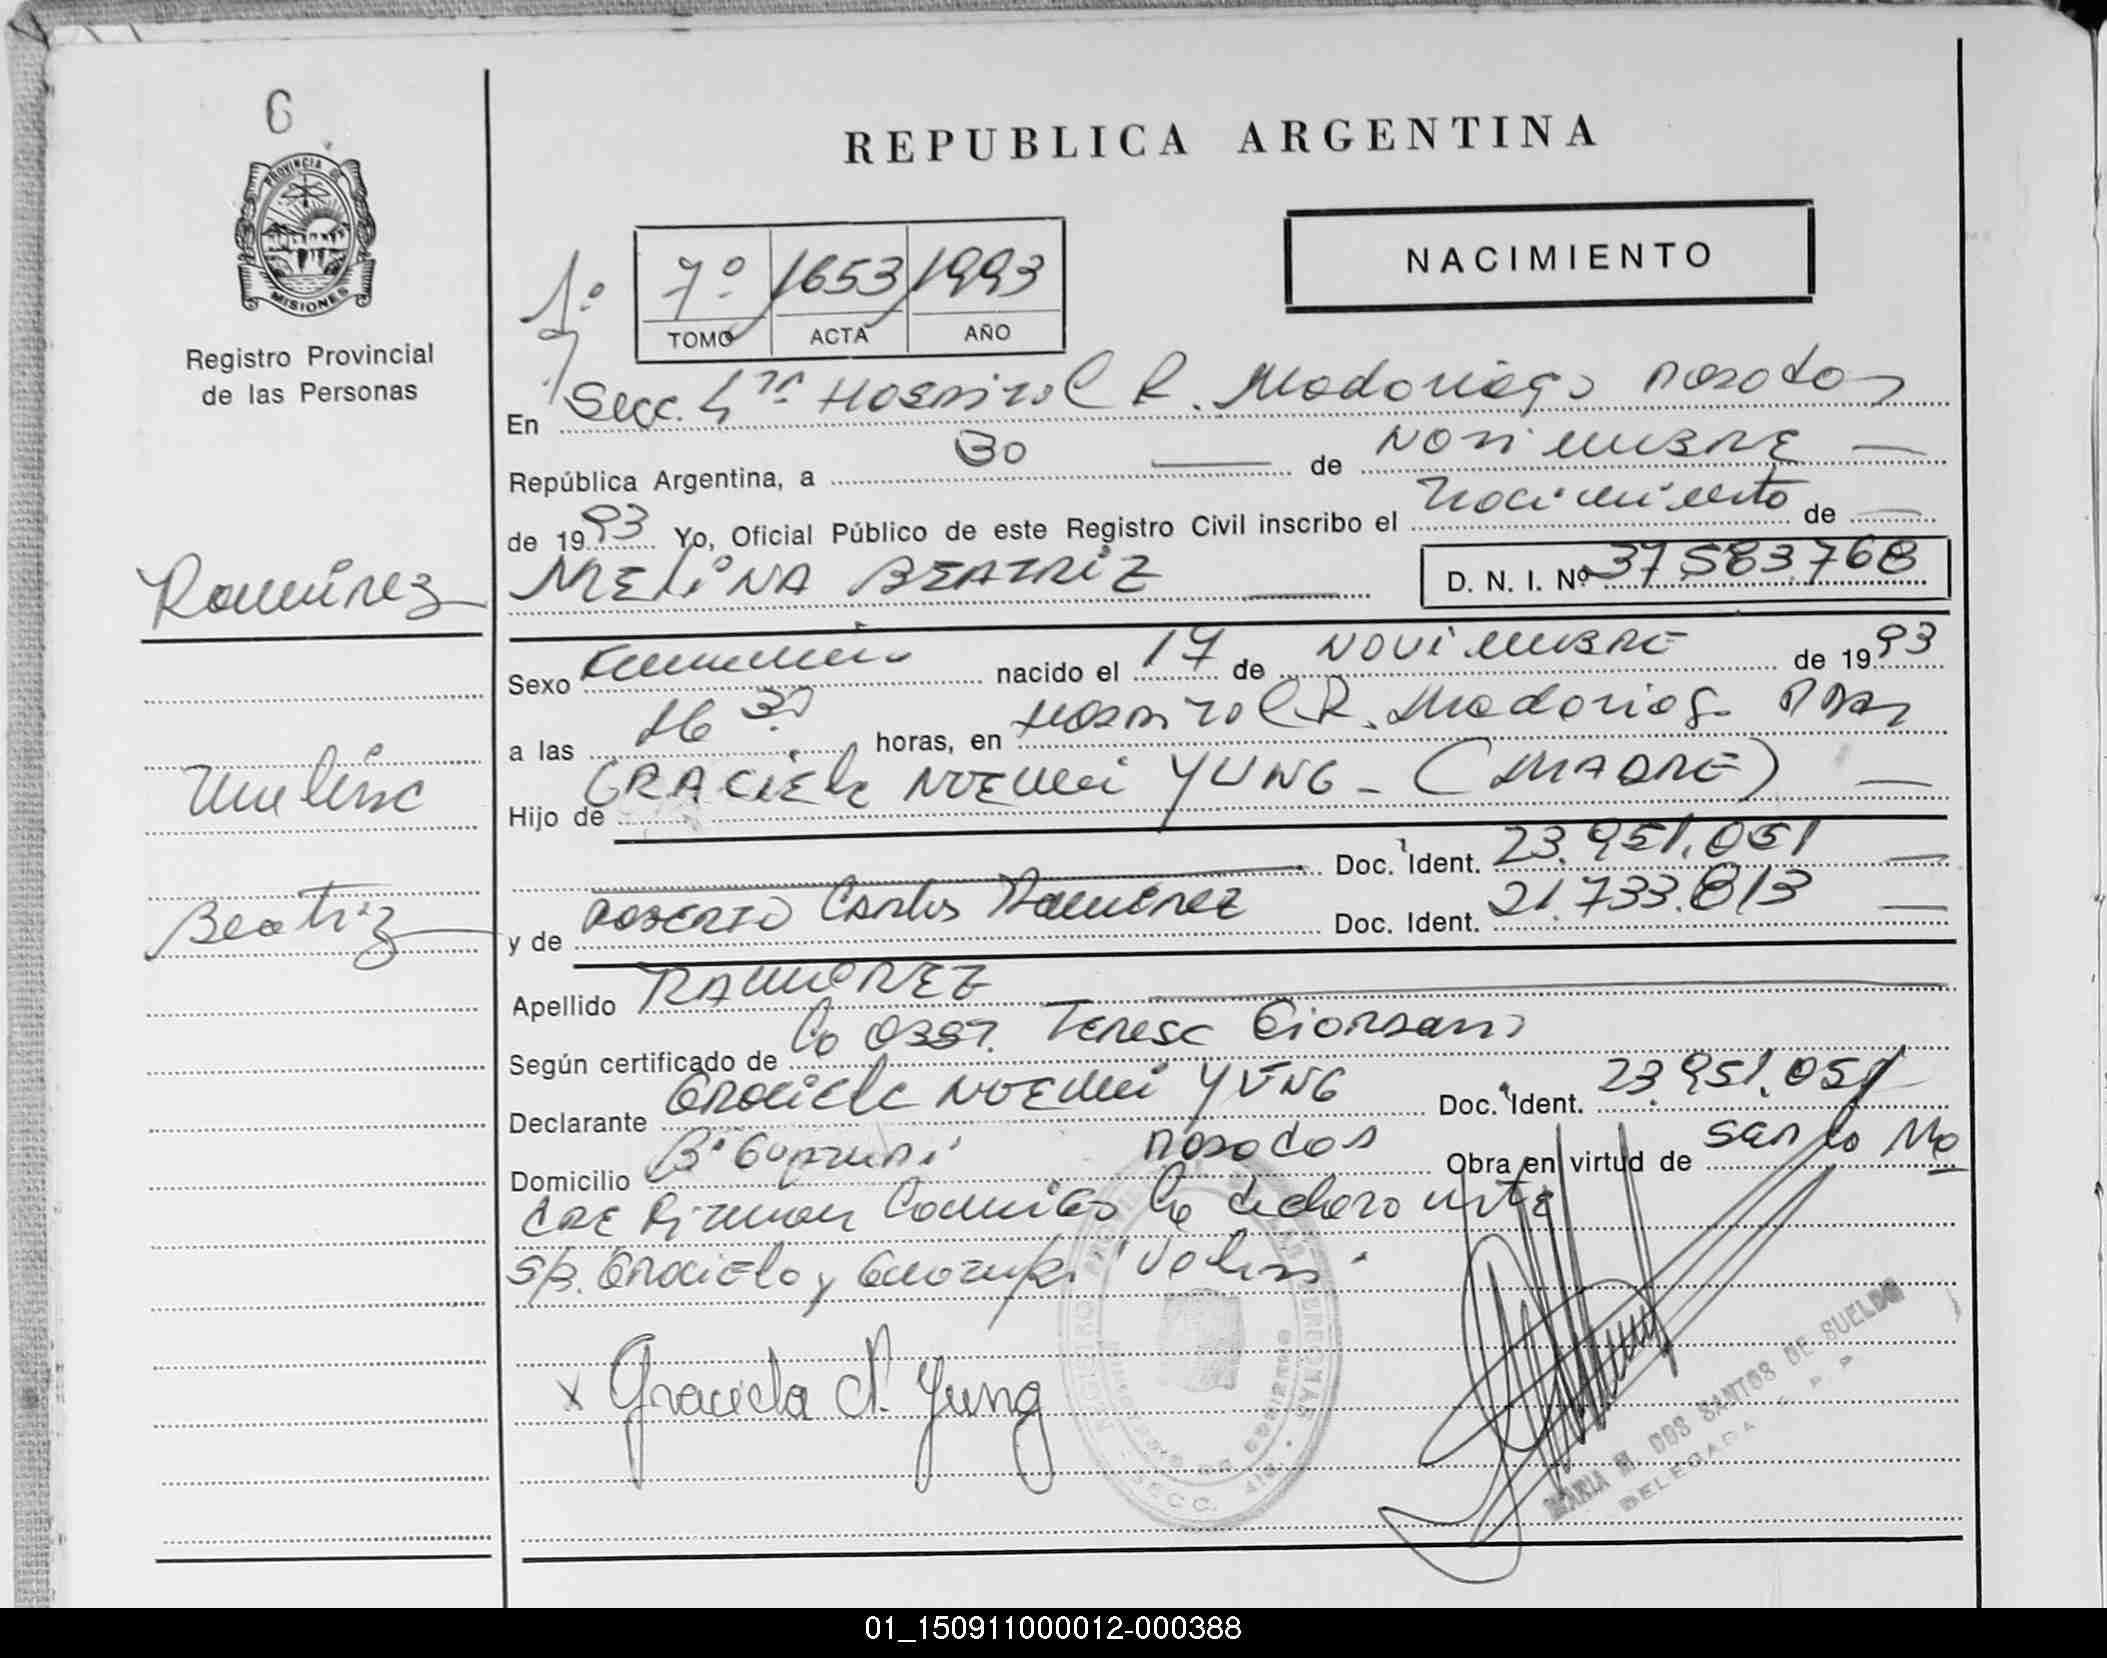 6
REPUBLICA ARGENTINA
PROVINCIA DE
MISIONES
Registro Provincial
de las Personas
NACIMIENTO
1º
7º 1653 1993
TOMO ACTA AÑO
En Secc. 4ta Hospital R. Madariaga Posadas
República Argentina, a 30 de NOVIEMBRE
de 1993 Yo, Oficial Público de este Registro Civil inscribo el Nacimiento de
Ramirez
MELINA BEATRIZ D. N. I. Nº 37583.768
Sexo Femenino nacido el 17 de NOVIEMBRE de 1993
a las 16 30 horas, en Hospital R. Madariaga Pdas
Melina
Hijo de GRACIELA NOEMI YUNG - (MADRE)
Doc. Ident. 23.951.051
Beatriz
y de ROBERTO Carlos Ramirez Doc. Ident. 21.733.813
Apellido RAMIREZ
Según certificado de la Obst. Teresa
Declarante Graciela NOEMI YUNG Doc. Ident. 23.951.051
Domicilio Bº Posadas Obra en virtud de
Conmigo la declarante
Graciela y "
x Graciela N. Yung
REGISTRO PROVINCIAL DE LAS PERSONAS
MINISTERIO DE GOBIERNO
SECC. 4ta
MARIA M. DOS SANTOS DE SUELDO
DELEGADA R P P
01_150911000012-000388